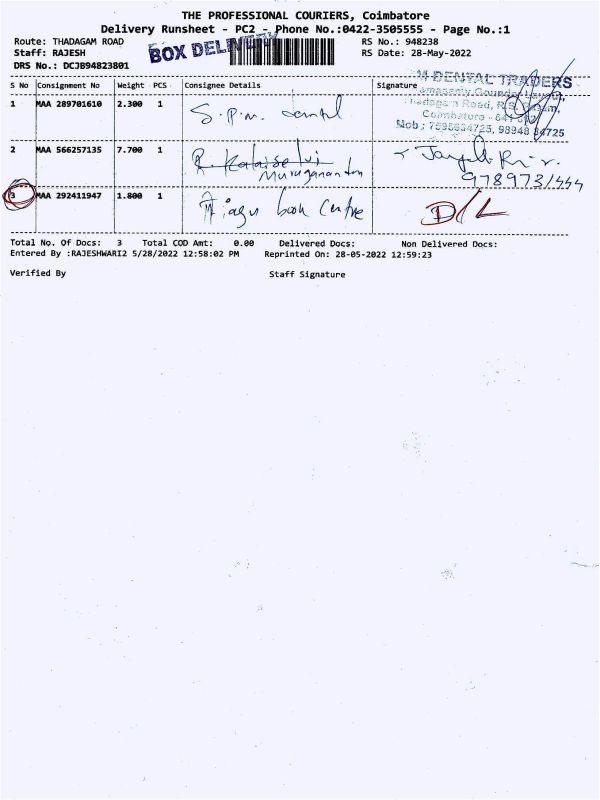 THE PROFESSIONAL COURIERS, Coimbatore
Delivery Runsheet - PC2 - Phone No.:0422-3505555 - Page No.:1
Route: THADAGAM ROAD RS No.: 948238
Staff: RAJESH BOX DELIVERY RS Date: 28-May-2022
DRS No.: DCJB94823801
S No Consignment No Weight PCS Consignee Details Signature
1 MAA 289701610 2.300 1 S.P.M. Dental DENTAL TRADERS
Road, R.S.
Coimbatore - 641
Mob : 7598634725, 98948 84725
2 MAA 566257135 7.700 1 R Kalaiselvi
Muruganantan
978973/444
3 MAA 292411947 1.800 1 Tiagu book Centre D/L
Total No. Of Docs: 3 Total COD Amt: 0.00 Delivered Docs: Non Delivered Docs:
Entered By :RAJESHWARI2 5/28/2022 12:58:02 PM Reprinted On: 28-05-2022 12:59:23
Verified By Staff Signature